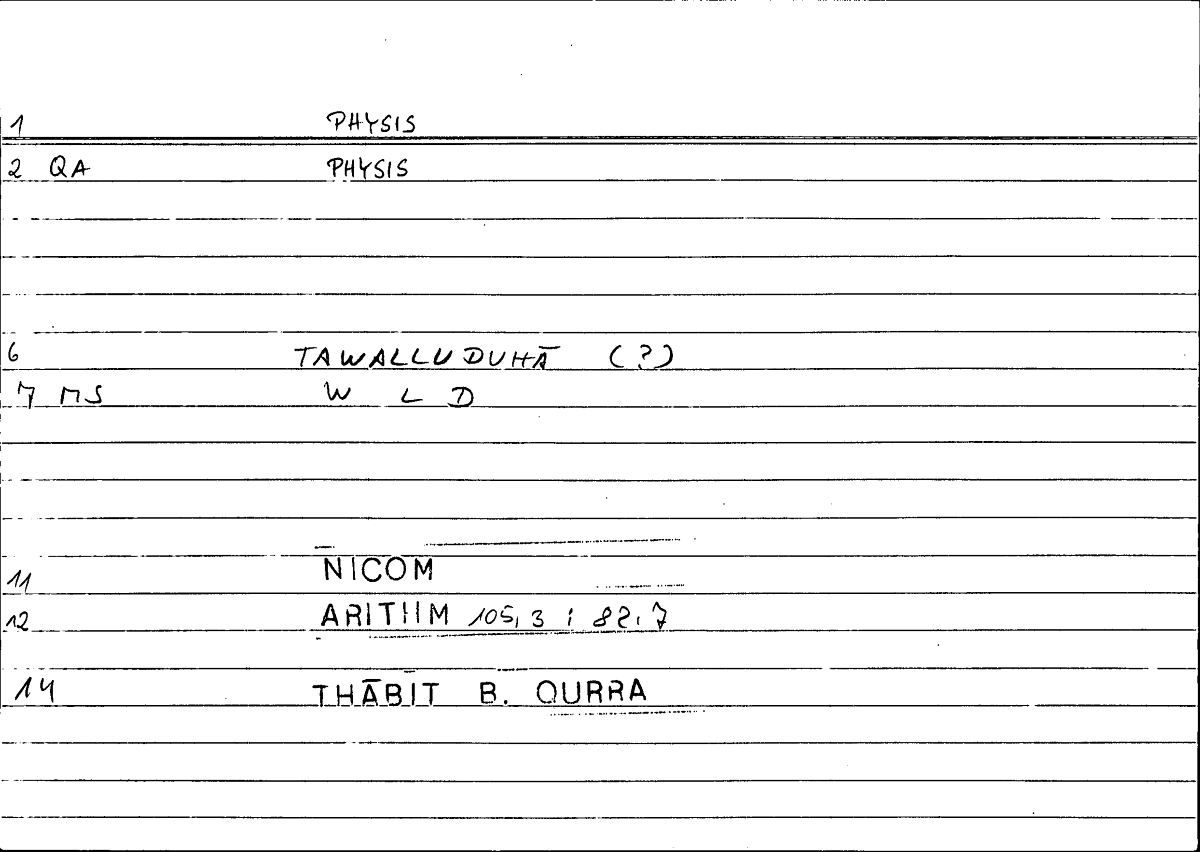 1 PHYSIS
2 QA PHYSIS
6 TAWALLUDUHĀ (?)
7 MS W L D
11 NICOM
12 ARITHM 105,3 ; 82,7
14 THĀBIT B. QURRA